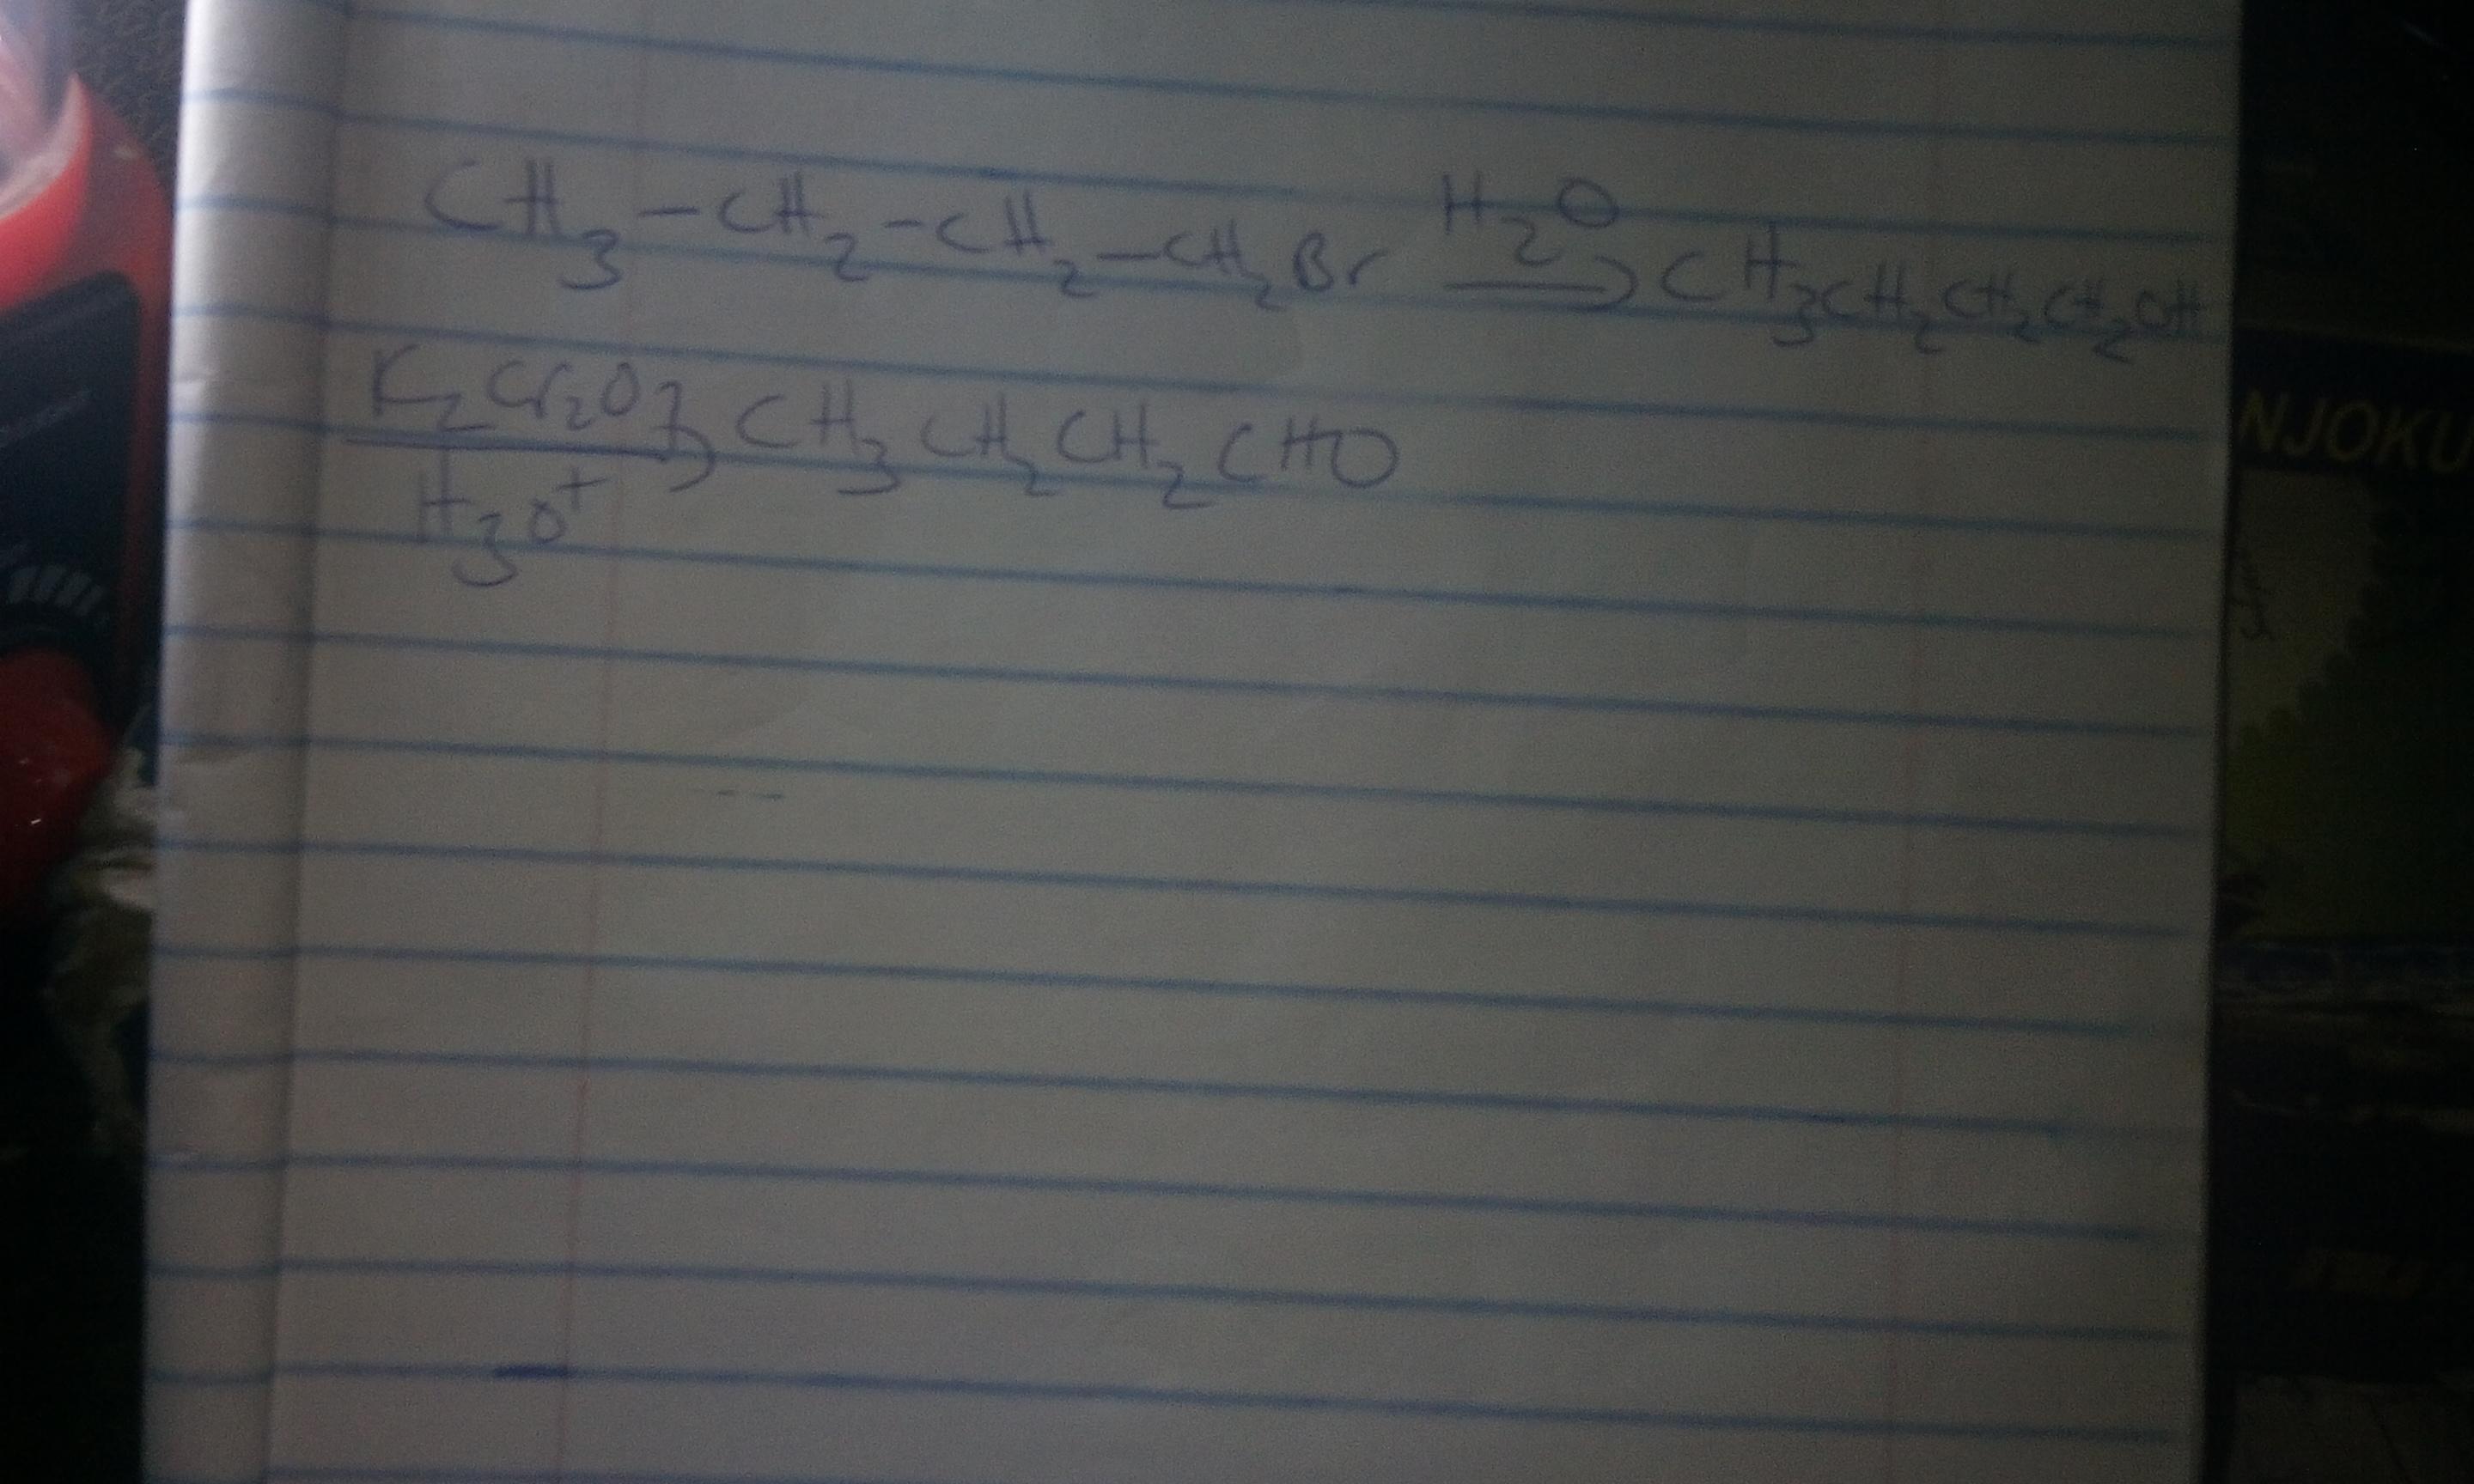 CH₃-CH₂-CH₂-CH₂Br H₂O → CH₃CH₂CH₂CH₂OH
K₂Cr₂O₇ / H₃O⁺ → CH₃CH₂CH₂CHO
NJOKU